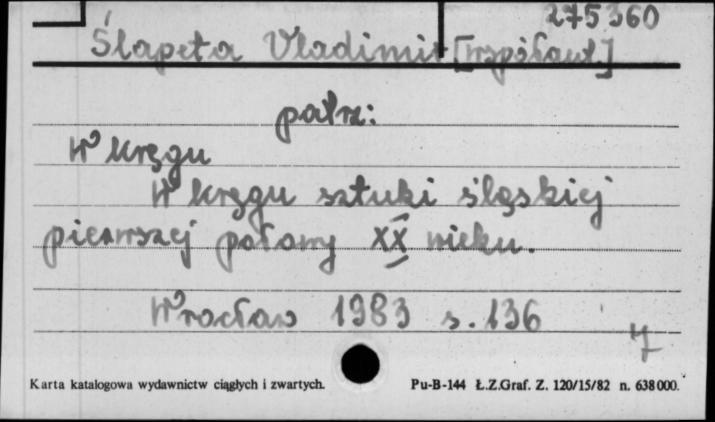 275360
Ślapeta Vladimir [współaut.]
patrz:
W kręgu
W kręgu sztuki śląskiej
pierwszej połowy XX wieku.
Wrocław 1983 s. 136
Karta katalogowa wydawnictw ciągłych i zwartych.
Pu-B-144 Ł.Z.Graf. Z. 120/15/82 n. 638000.